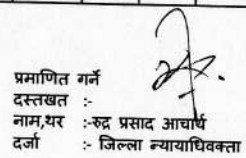 प्रमाणित गर्ने
दस्तखत :-
नाम,थर :-रुद्र प्रसाद आचार्य
दर्जा :- जिल्ला न्यायाधिवक्ता